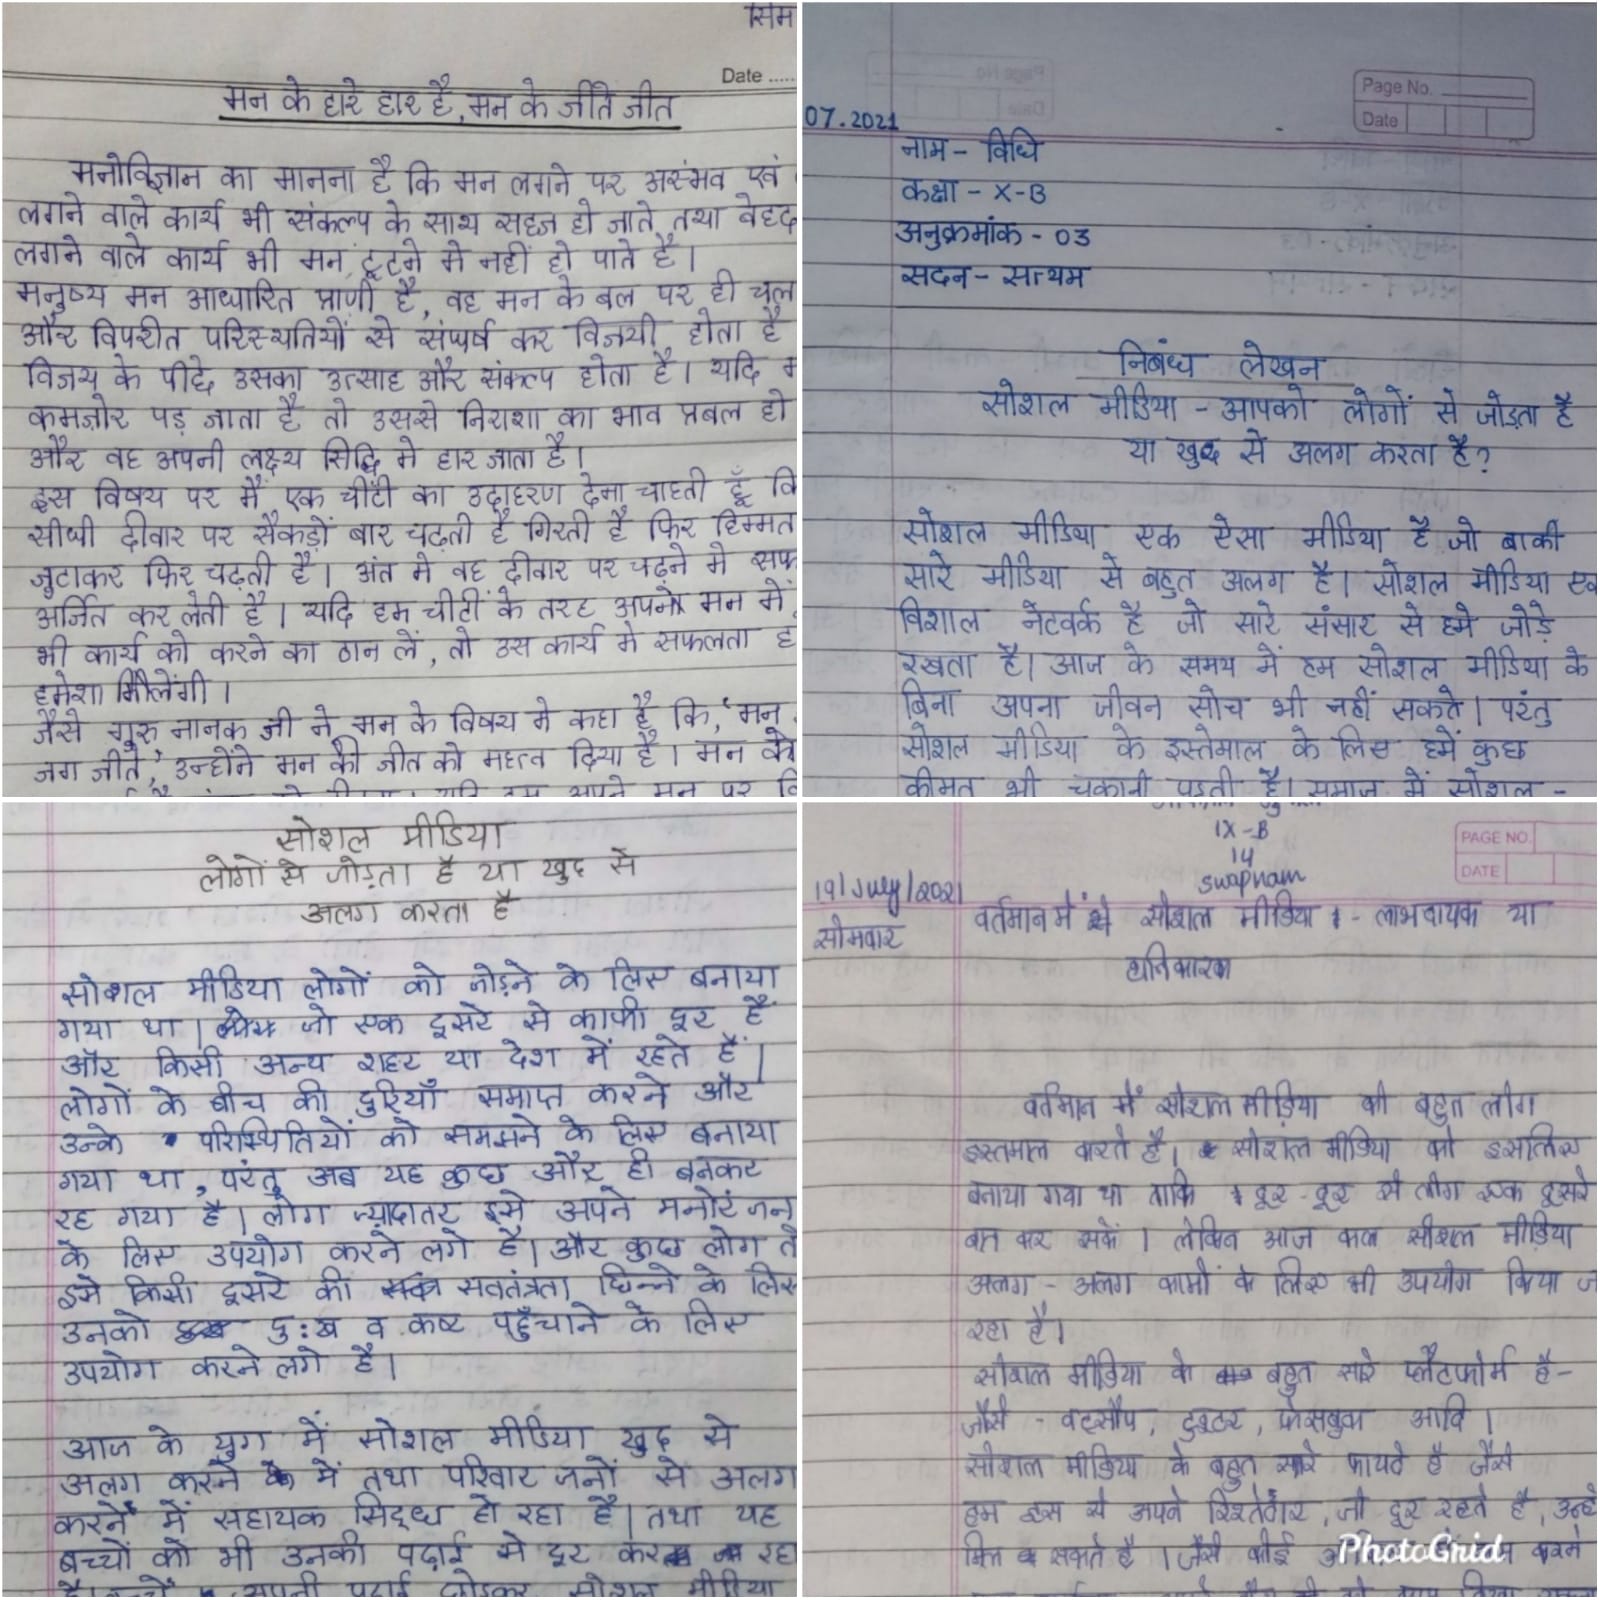 सिम
Date .....
मन के हारे हार है, मन के जीते जीत
मनोविज्ञान का मानना है कि मन लगने पर असंभव एवं
लगने वाले कार्य भी संकल्प के साथ सहज हो जाते तथा बेहद
लगने वाले कार्य भी मन टूटने मे नहीं हो पाते है।
मनुष्य मन आधारित प्राणी है, वह मन के बल पर ही चल
और विपरीत परिस्थतियों से संघर्ष कर विजयी होता है
विजय के पीछे उसका उत्साह और संकल्प होता है। यदि म
कमजोर पड़ जाता है तो उससे निराशा का भाव प्रबल हो
और वह अपनी लक्ष्य सिद्धि मे हार जाता है।
इस विषय पर मैं एक चींटी का उदाहरण देना चाहती हूँ कि
सीधी दीवार पर सैकड़ों बार चढ़ती है गिरती है फिर हिम्मत
जुटाकर फिर चढ़ती है। अंत मे वह दीवार पर चढ़ने मे सफ
अर्जित कर लेती है। यदि हम चीटीं के तरह अपने मन में
भी कार्य को करने का ठान लें, तो उस कार्य मे सफलता ह
हमेशा मिलेंगी।
जैसे गुरु नानक जी ने मन के विषय मे कहा है कि, 'मन
जग जीते,' उन्होंने मन की जीत को महत्व दिया है। मन के
07.2021
Page No.
Date
नाम - विधि
कक्षा - X-B
अनुक्रमांक - 03
सदन - सत्यम
निबंध लेखन
सोशल मीडिया - आपको लोगों से जोड़ता है
या खुद से अलग करता है?
सोशल मीडिया एक ऐसा मीडिया है जो बाकी
सारे मीडिया से बहुत अलग है। सोशल मीडिया एक
विशाल नेटवर्क है जो सारे संसार से हमे जोड़े
रखता है। आज के समय में हम सोशल मीडिया के
बिना अपना जीवन सोच भी नहीं सकते। परंतु
सोशल मीडिया के इस्तेमाल के लिए हमें कुछ
कीमत भी चकानी पड़ती है। समाज में सोशल -
सोशल मीडिया
लोगों से जोड़ता है या खुद से
अलग करता है
सोशल मीडिया लोगों को जोड़ने के लिए बनाया
गया था। जो एक दूसरे से काफी दूर हैं
और किसी अन्य शहर या देश में रहते हैं।
लोगों के बीच की दुरियाँ समाप्त करने और
उन्के परिस्थितियों को समझने के लिए बनाया
गया था, परंतु अब यह कुछ और ही बनकर
रह गया है। लोग ज्यादातर इसे अपने मनोरंजन
के लिए उपयोग करने लगे है। और कुछ लोग तो
इसे किसी दूसरे की सवतंत्रता छिन्ने के लिए
उनको दुःख व कष्ट पहुँचाने के लिए
उपयोग करने लगे है।
आज के युग में सोशल मीडिया खुद से
अलग करने में तथा परिवार जनों से अलग
करने में सहायक सिद्ध हो रहा है। तथा यह
बच्चों को भी उनकी पढ़ाई से दूर कर रहा
IX-B
14
Swapnam
PAGE NO.
DATE
19/July/2021
सोमवार
वर्तमान में सोशल मीडिया - लाभदायक या
हानिकारक
वर्तमान में सोशल मीडिया को बहुत लोग
इस्तमाल करते है। सोशल मीडिया को इसलिए
बनाया गया था ताकि दूर-दूर से लोग एक दूसरे
बात कर सकें। लेकिन आज कल सोशल मीडिया
अलग - अलग कामों के लिए भी उपयोग किया ज
रहा है।
सोशल मीडिया के बहुत सारे प्लैटफोर्म है-
जैसे - वट्सौप, टुइटर, फेसबुक आदि।
सोशल मीडिया के बहुत सारे फायदे है जैसे
हम इस से अपने रिश्तेदार, जो दूर रहते है, उन्हे
मिल सकते है। जैसे कोई
PhotoGrid
करने